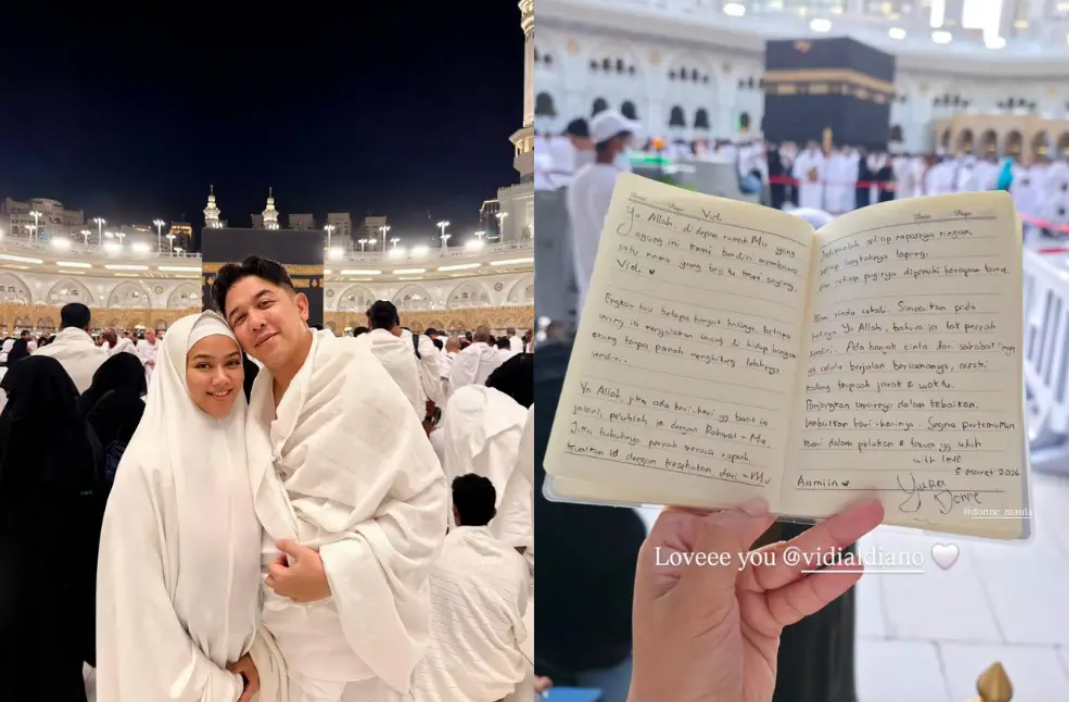 Vid.
Ya Allah, di depan rumah Mu yang
agung ini kami berdiri membawa
satu nama yang begitu kami sayang,
Vidi ♥
Engkau tau betapa hangat hatinya, betapa
sering ia menyalakan terang di hidup banyak
orang tanpa pernah menghitung lelahnya
sendiri.
Ya Allah, jika ada hari-hari yg berat ia
jalani, peluklah ia dengan Rahmat-Mu.
Jika tubuhnya pernah merasa rapuh,
kuatkan ia dengan kesehatan dari-Mu
Date Page
Jadikanlah setiap napasnya ringan,
setiap langkahnya lapang,
dan setiap paginya dipenuhi harapan baru.
rindu Sampaikan pada
hatinya Ya Allah, bahwa ia tak pernah
sendiri. Ada banyak cinta dari sahabat²nya
yg selalu berjalan bersamanya, meski
kadang terpisah jarak & waktu.
Panjangkan umurnya dalam kebaikan,
lembutkan hari-harinya. Segera pertemukan
kami dalam pelukan & tawa yg utuh
with love
5 Maret 2026
Aamiin ♥
Yura
Donne
@donne_maula
Loveee you @vidialdiano 🤍